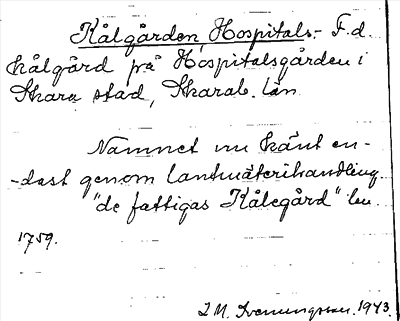 Kålgården, Hospitals-. F.d.
kålgård på Hospitalsgården i
Skara stad, Skarab. län
Namnet nu känt en-
-dast genom lantmäterihandling.
"de fattigas Kålegård"
1759.
I M. Svenungsson. 1943.